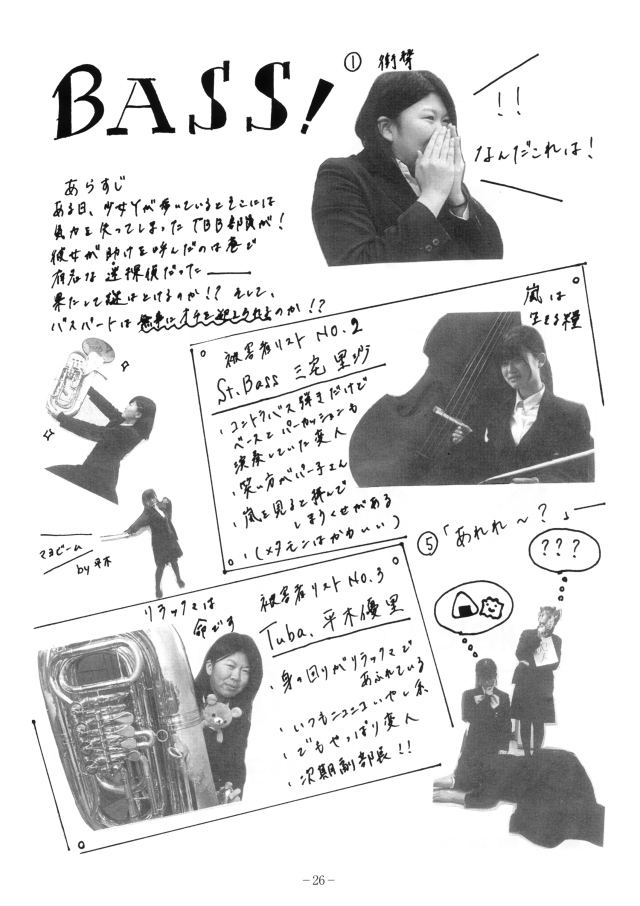 BASS!
① 衝撃
!!
なんだこれは!
あらすじ
ある日、少女Yが歩いているとそこには
気力を失ってしまったTBB部員が!
彼女が助けを呼んだのは巷で
有名な迷探偵だった——
果たして謎はとけるのか!? そして、
バスパートは無事にオチを迎えられるのか!?
嵐は
生きる糧
被害者リスト NO.2
St.Bass 三宅 里
・コントラバス弾きだけで
ベースとパーカッションも
演奏していた変人
・笑い方がパー子さん
・嵐を見ると拝んで
しまうくせがある
・(メタモンはかわいい)
マヨビーム
by 平木
⑤「あれれ〜?」
???
リラックマは
命です
被害者リスト NO.3
Tuba. 平木優里
・身の回りがリラックマで
あふれている
・いつもニコニコいやし系
・でもやっぱり変人
・次期副部長!!
－26－